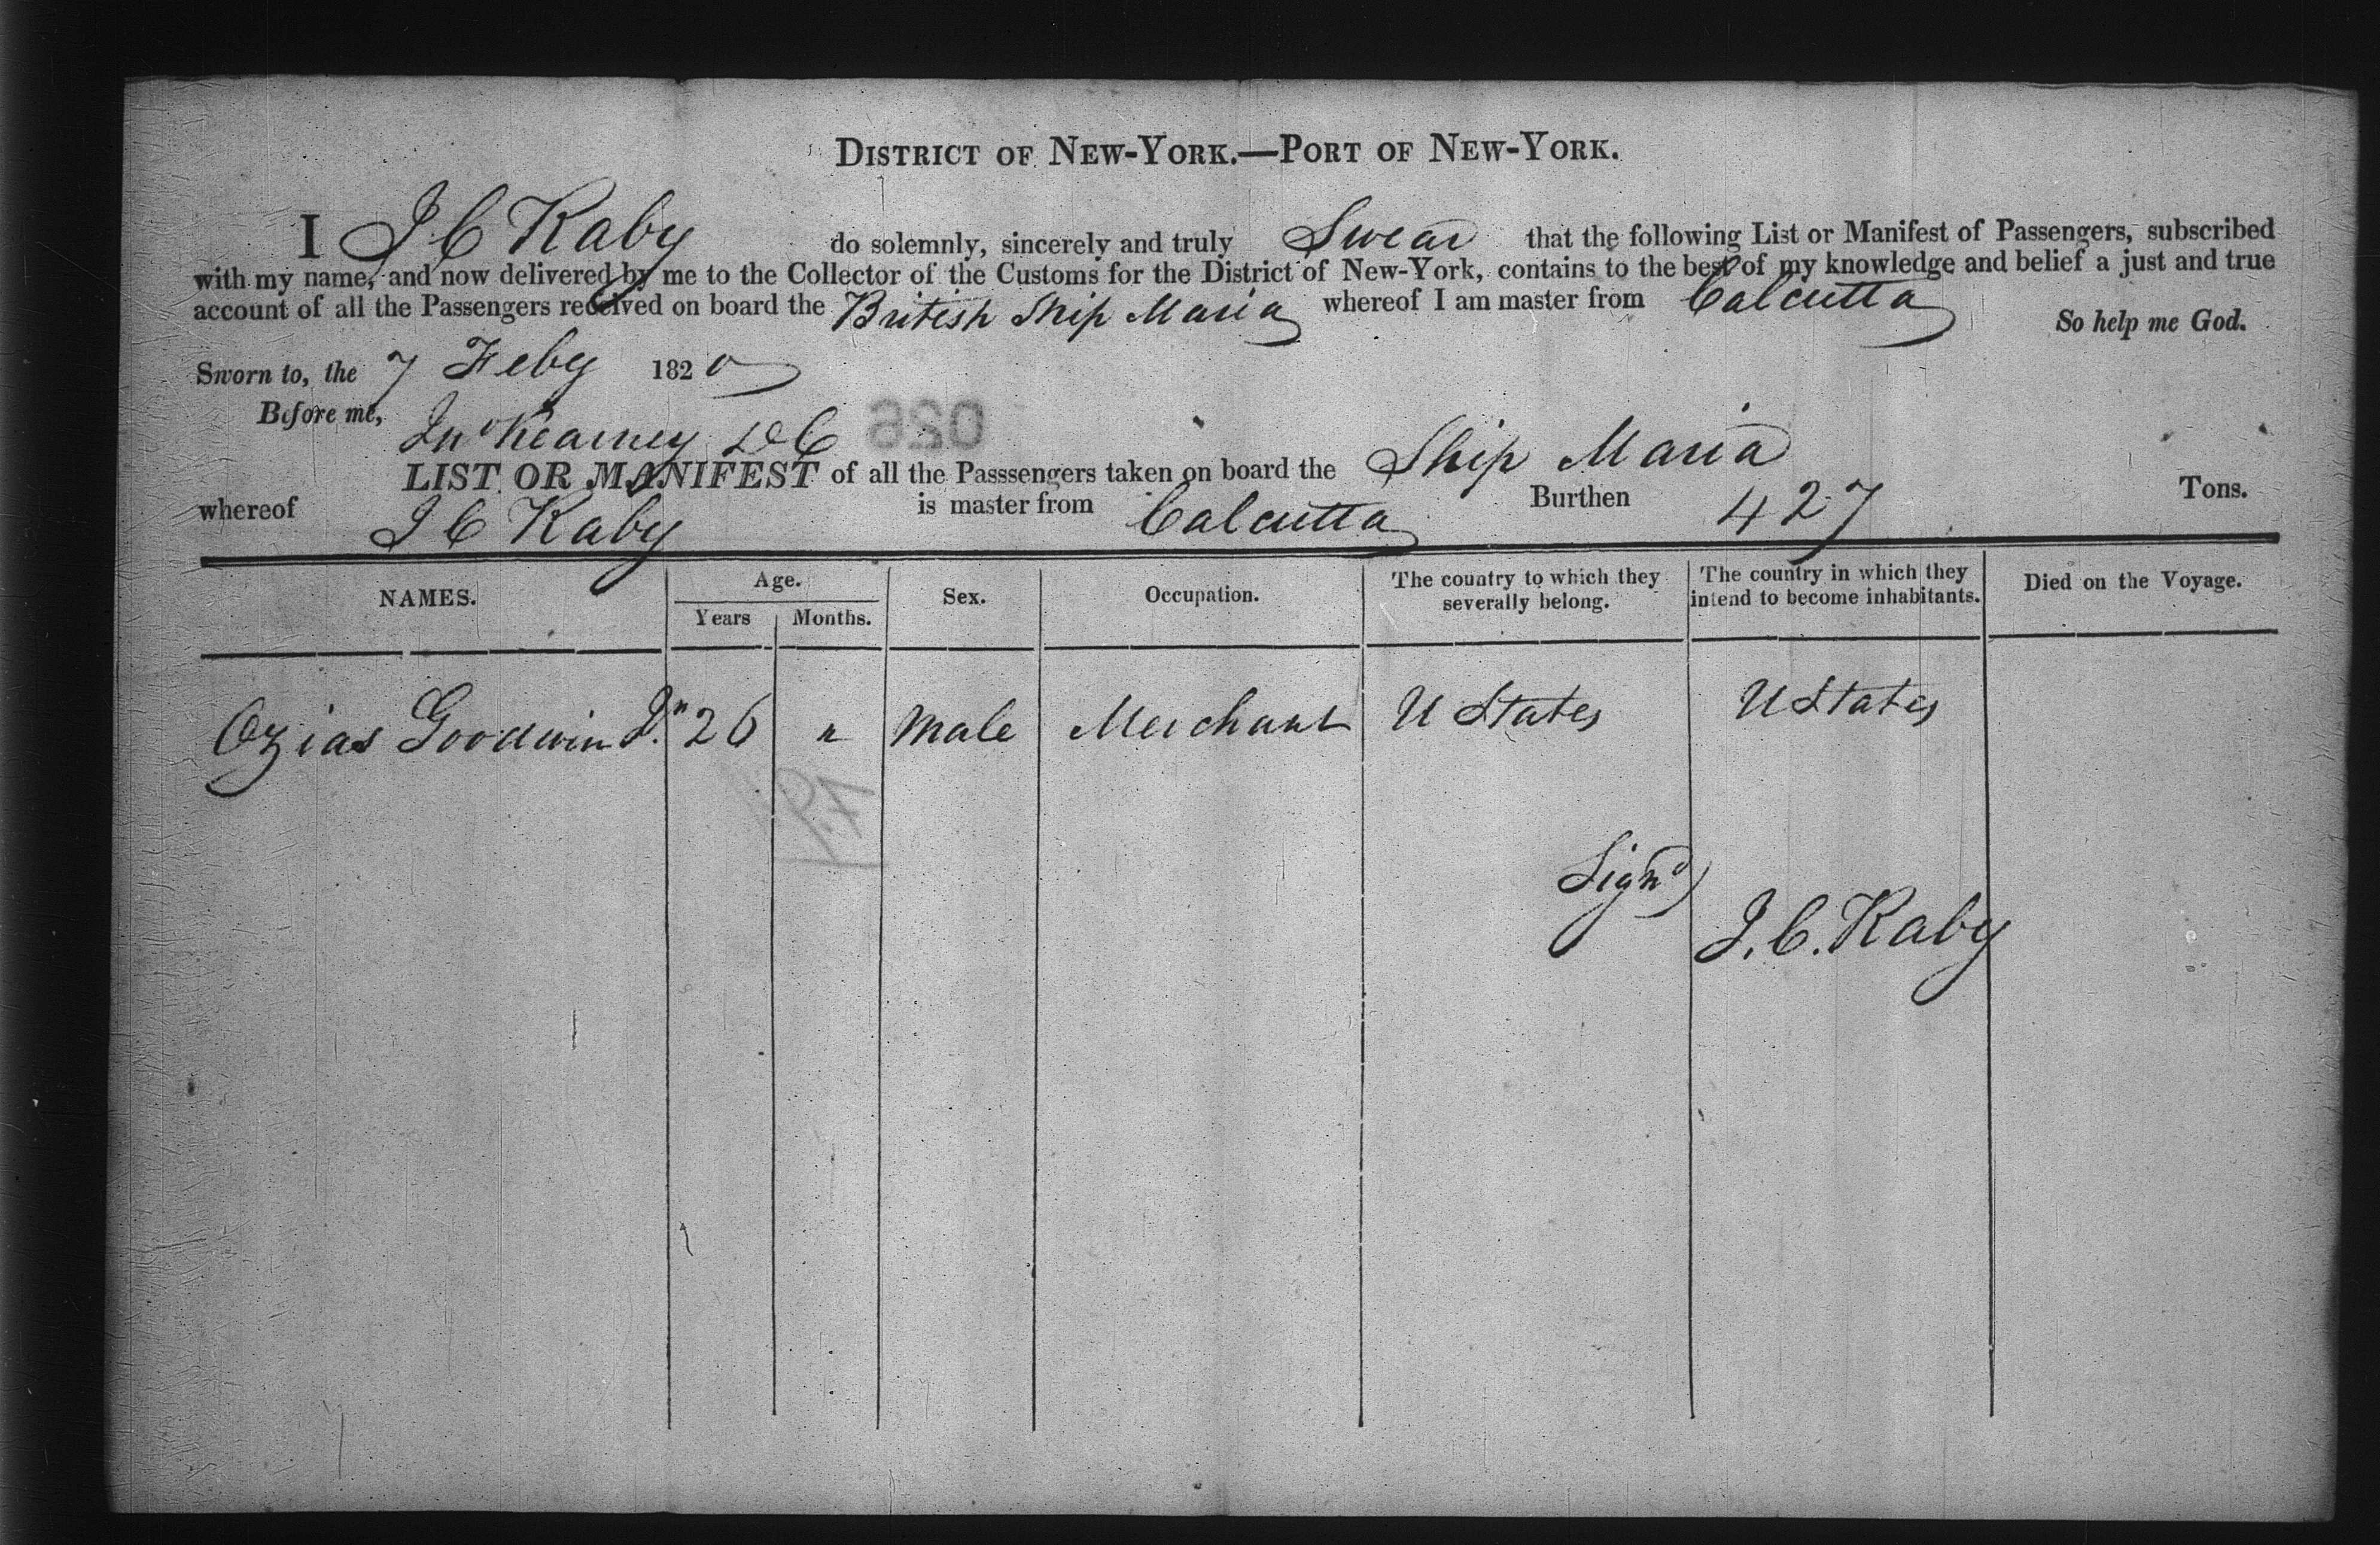 DISTRICT OF NEW-YORK.—PORT OF NEW-YORK.
I J C Raby do solemnly, sincerely and truly Swear that the following List or Manifest of Passengers, subscribed
with my name, and now delivered by me to the Collector of the Customs for the District of New-York, contains to the best of my knowledge and belief a just and true
account of all the Passengers received on board the British Ship Maria whereof I am master from Calcutta
So help me God.
Sworn to, the 7 Feby 1820
Before me,
Jno Kearney DC
026
LIST OR MANIFEST of all the Passsengers taken on board the Ship Maria
whereof J C Raby is master from Calcutta Burthen 427 Tons.
NAMES. Age. Years Months. Sex. Occupation. The country to which they severally belong. The country in which they intend to become inhabitants. Died on the Voyage.
Ozias Goodwin Jr. 26 " male Merchant U States U States
Signd)
J. C. Raby